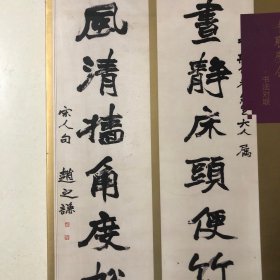 晝靜床頭便竹
大人屬
風清牆角度松
宋人句
趙之謙
书法对联